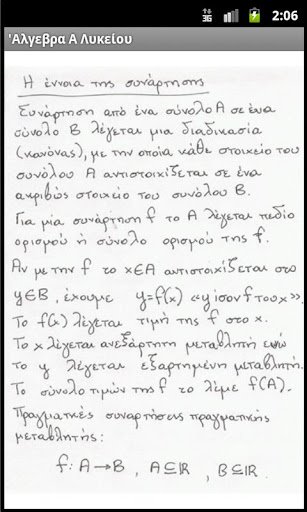 3G 2:06
'Άλγεβρα Α Λυκείου
Η έννοια της συνάρτησης
Συνάρτηση από ένα σύνολο Α σε ένα
σύνολο Β λέγεται μια διαδικασία
(κανόνας), με την οποία κάθε στοιχείο του
συνόλου Α αντιστοιχίζεται σε ένα
ακριβώς στοιχείο του συνόλου Β.
Για μία συνάρτηση f το Α λέγεται πεδίο
ορισμού ή σύνολο ορισμού της f.
Αν με την f το x∈A αντιστοιχίζεται στο
y∈B, έχουμε y=f(x) «y ίσον f του x».
Το f(x) λέγεται τιμή της f στο x.
Το x λέγεται ανεξάρτητη μεταβλητή ενώ
το y λέγεται εξαρτημένη μεταβλητή.
Το σύνολο τιμών της f το λέμε f(A).
Πραγματικές συναρτήσεις πραγματικής
μεταβλητής:
f: A→B, A⊆ℝ, B⊆ℝ.